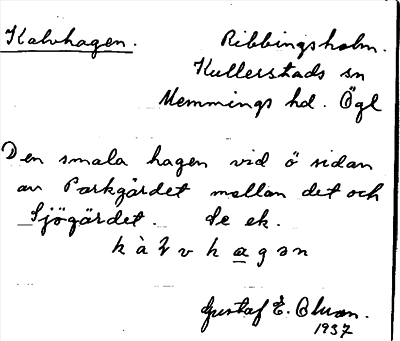 Kalvhagen.
Ribbingsholm.
Kullerstads sn
Memmings hd. Ögl
Den smala hagen vid ö sidan
av Parkgärdet mellan det och
Sjögärdet. Se ek.
Gustaf E.
1937